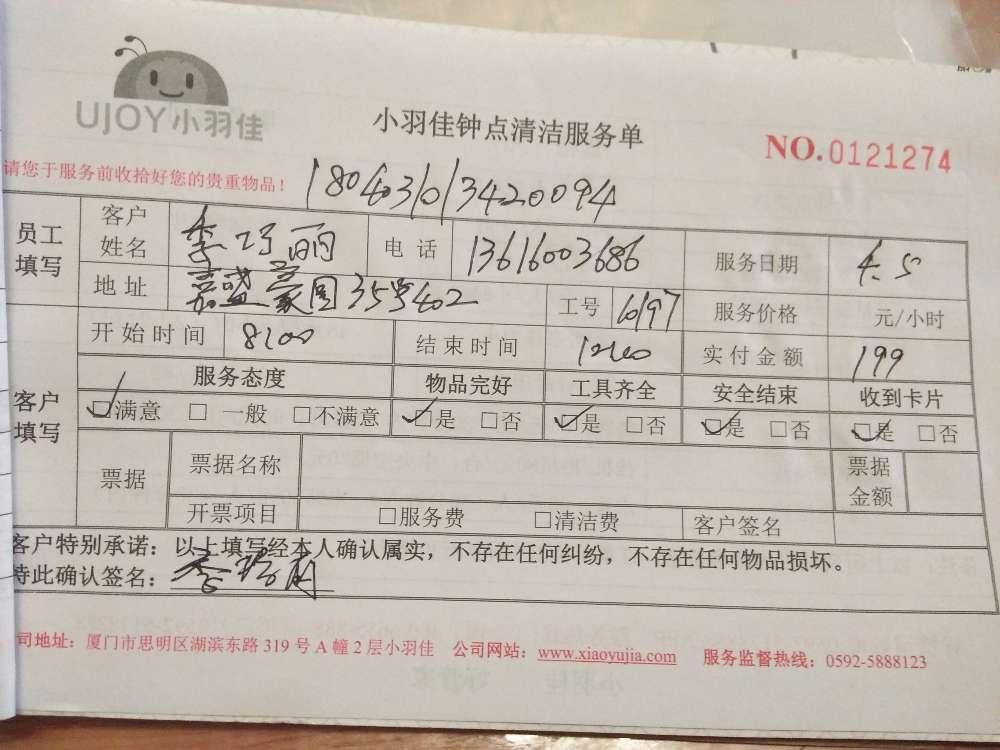 UJOY小羽佳
小羽佳钟点清洁服务单
NO.0121274
请您于服务前收拾好您的贵重物品！
1804031013420094
员工填写 客户姓名 李巧丽 电话 13616003686 服务日期 4.5
地址 嘉盛豪园35号402 工号 6197 服务价格 元/小时
开始时间 8:00 结束时间 12:00 实付金额 199
客户填写 服务态度 物品完好 工具齐全 安全结束 收到卡片
☑满意 □一般 □不满意 ☑是 □否 ☑是 □否 ☑是 □否 ☑是 □否
票据 票据名称 票据金额
开票项目 □服务费 □清洁费 客户签名
客户特别承诺：以上填写经本人确认属实，不存在任何纠纷，不存在任何物品损坏。
特此确认签名：
司地址：厦门市思明区湖滨东路 319 号 A 幢 2 层小羽佳 公司网站：www.xiaoyujia.com 服务监督热线：0592-5888123